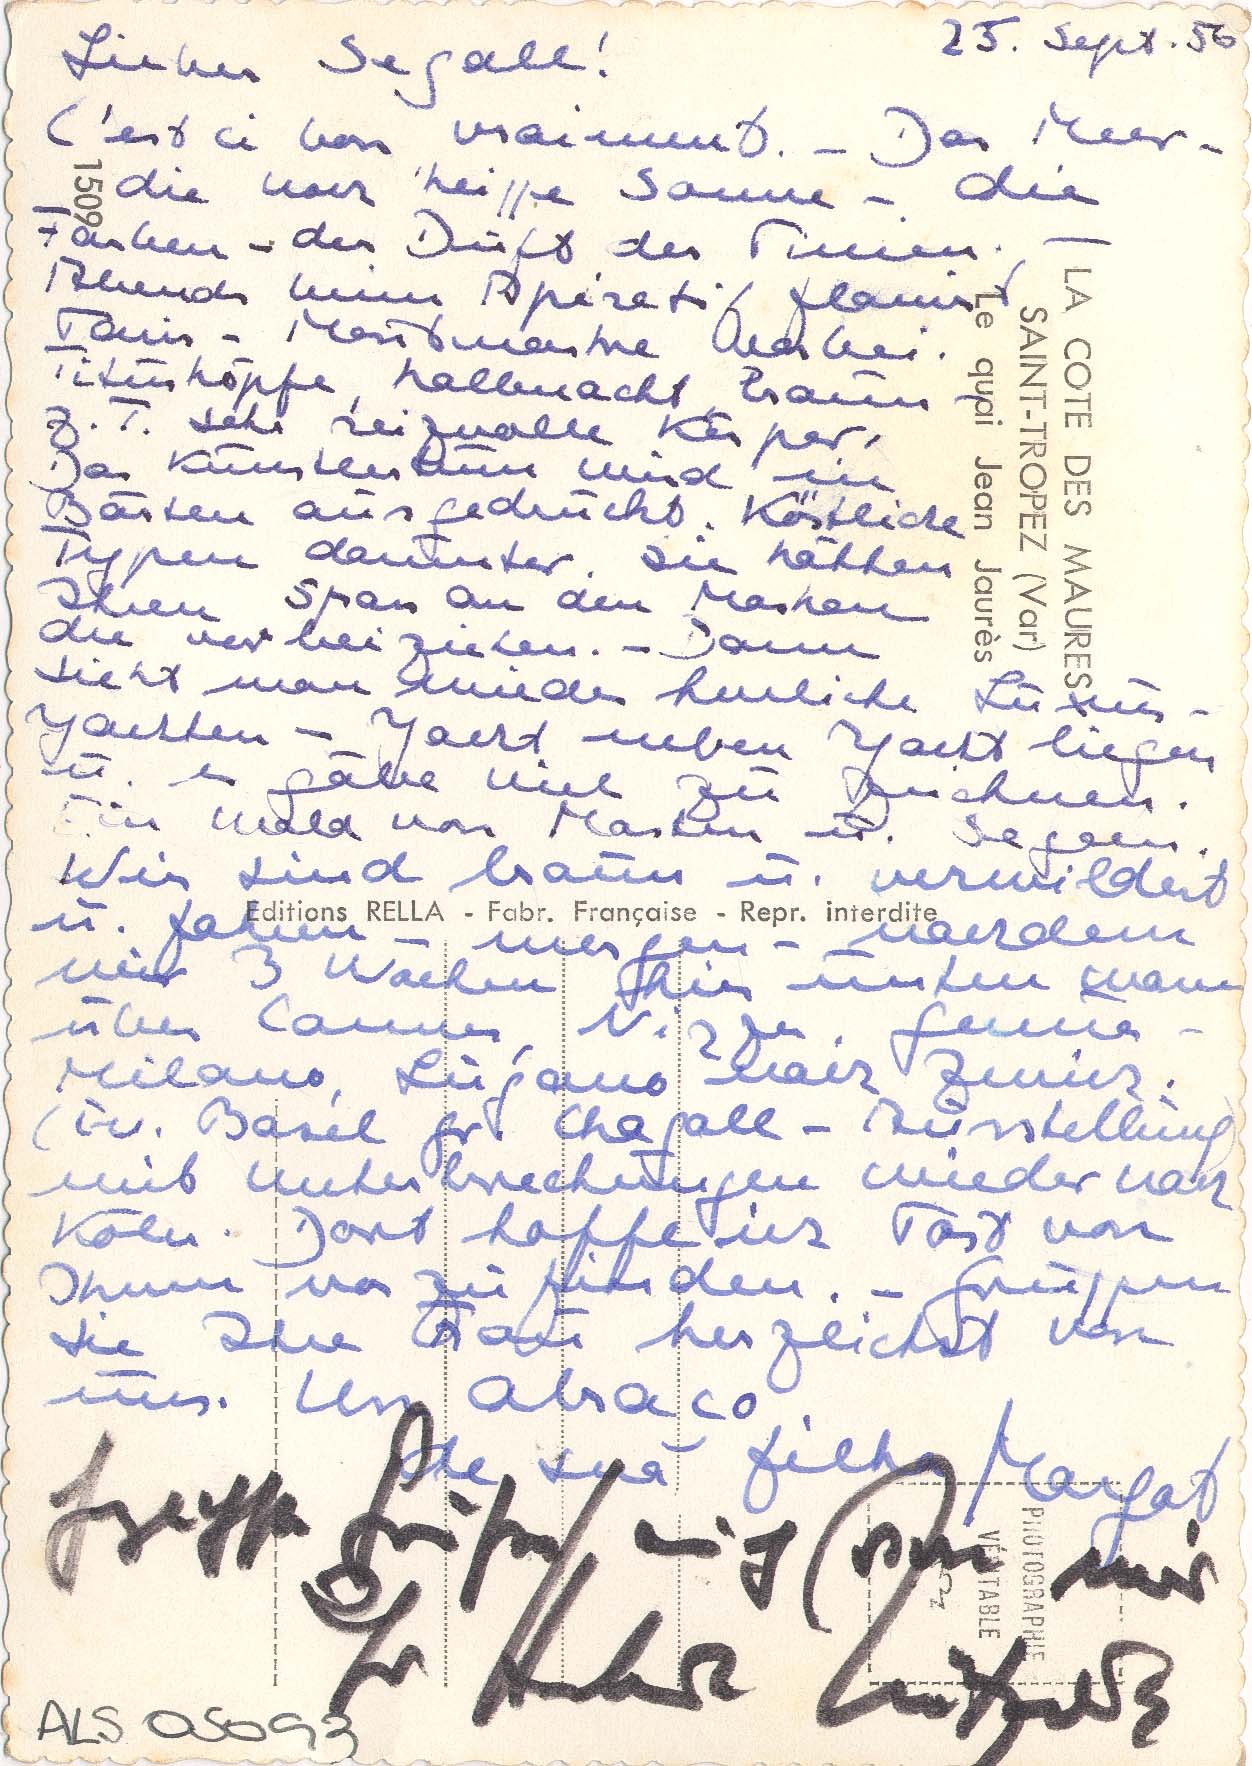 25. Sept. 56
Lieber Segall!
C'est ci bon vraiment. – Das Meer –
die noch heisse Sonne – die
Farben – der Duft der Pinien.
Abends beim Apéretif flaniert
Paris – Montmartre vorbei.
Tituskõpfe, halbnackt, braun –
z. T. sehr reizvolle Körper,
Das Künstlertum wird in
Bärten ausgedrückt. Köstliche
Typen darunter. Sie hätten
Ihren Spass an den Masken
die vorbeiziehen. – Dann
sieht man wieder herrliche Luxus –
Yachten – Yacht neben Yacht liegen
u. es gäbe viel zu zeichnen.
Ein Wald von Masten u. Segeln.
Wir sind braun u. verwildert
u. fahren – morgen – nachdem
wir 3 Wochen hier unten waren
über Cannes, Nizza, Genua –
Milano, Lugano nach Zürich.
(In. Basel gr. Chagall – Ausstellung
mit Unterbrechungen wieder nach
Köln. Dort hoffe ich Post von
Ihnen vorzufinden. – Grüssen
Sie Ihre Frau herzlichst von
uns. Um abraço
de sua filha Margot
Grüße mit von mir
Ihr
1509
LA COTE DES MAURES
SAINT-TROPEZ (Var)
Le quai Jean Jaurès
Editions RELLA - Fabr. Française - Repr. interdite
PHOTOGRAPHIE
VÉRITABLE
ALS 05093